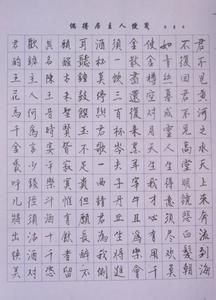 偶得居主人便箋
君不見黃河之水天上來奔流到海
不復回君不見高堂明鏡悲白髮朝
如青絲暮成雪人生得意須盡歡莫
使金樽空對月天生我材必有用千
金散盡還復來烹羊宰牛且為樂會
須一飲三百杯岑夫子丹丘生將進
酒杯莫停與君歌一曲請君為我
耳聽鐘鼓饌玉不足貴但願長醉不
醒古來聖賢皆寂寞惟有飲者留
其名陳王昔時宴平樂斗酒十千恣
歡謔主人何為言少錢徑須沽對
君酌五花馬千金裘呼兒將出換美